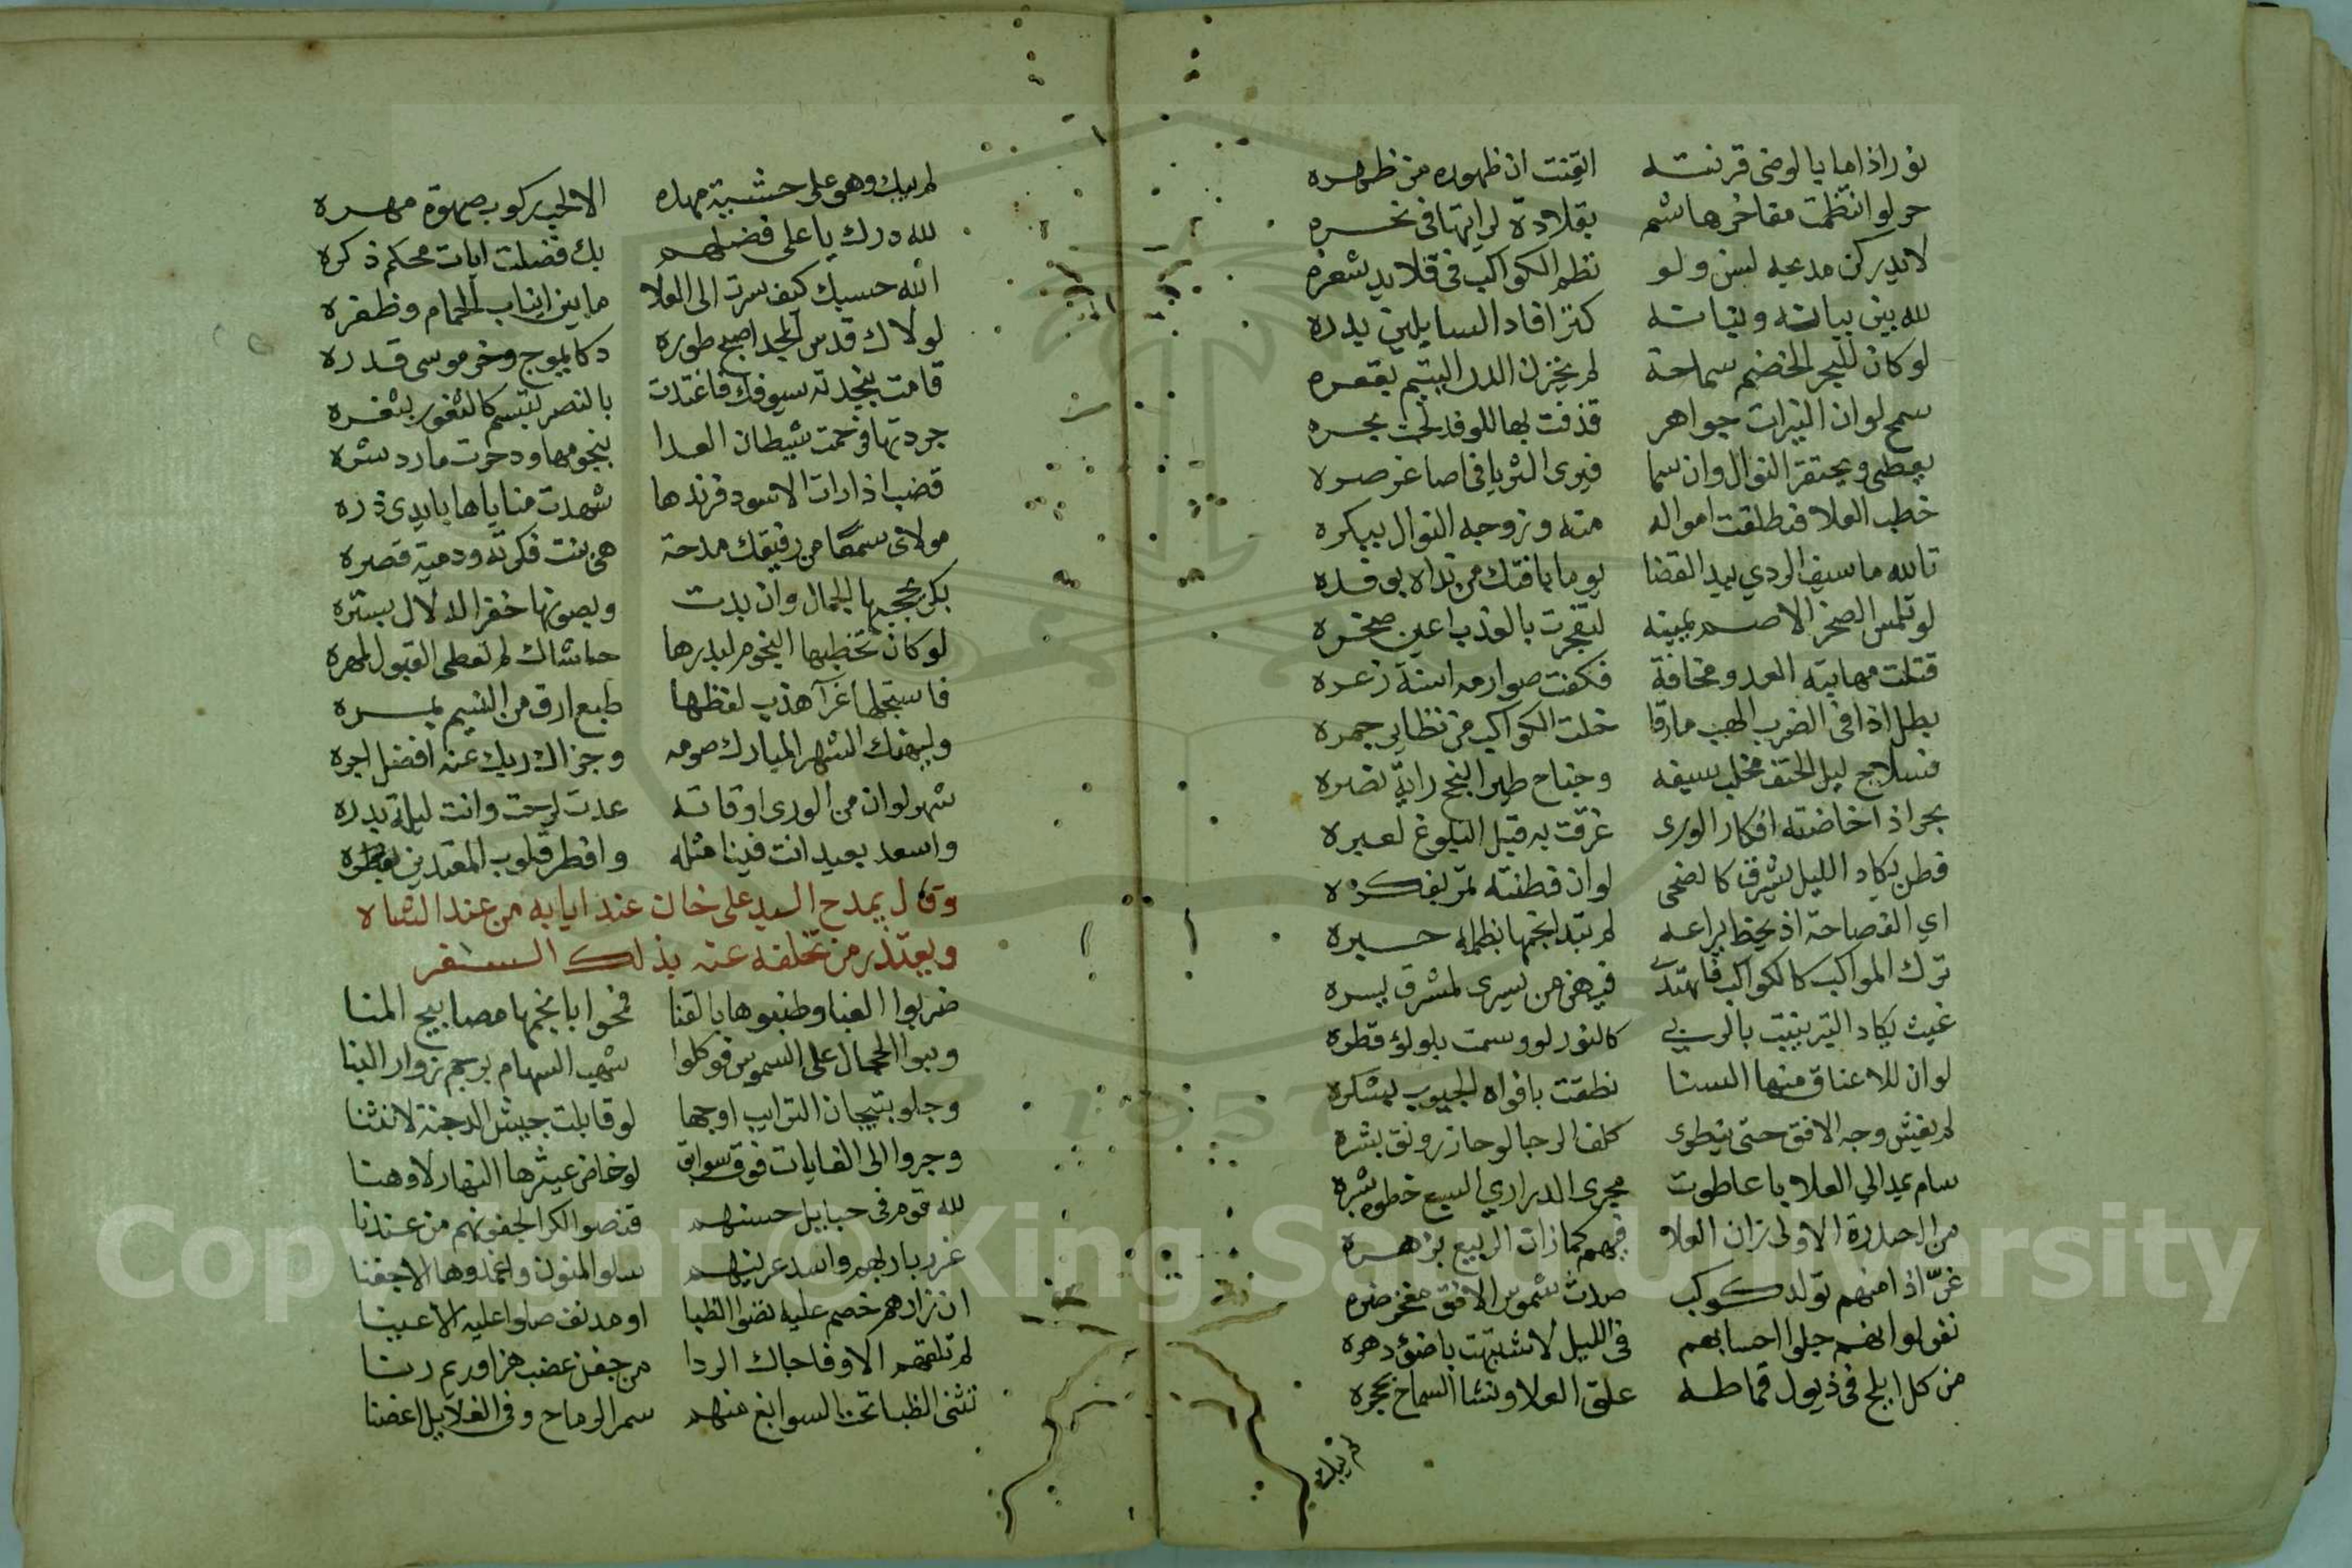 نور اذا ما بالوضى قرنته ايقنت ان ظهوره من ظهره
حر لو انتظمت مفاخر هاشم بقلادة لرايتها في نحره
لا يدركن مديحه لسن ولو نظم الكواكب في قلايد شعره
لله بين بيانه وبنانه كنز افاد السايلين بدره
لو كان للبحر الخضم سماحة لم يخزن الدر اليتيم بقعره
سمح لو ان النيرات جواهر قذفت بها للوفد لجت بحره
يعطى ويحتقر النوال وان سما فيرى الثريا في اصاغر صره
خطب العلا فتطلقت امواله منه وزوجه النوال ببكره
تالله ما سيف الردي بيد القضا يوما بافتك من نداه بوفده
لو تلمس الصخر الاصم يمينه لتفجرت بالعذب اعين صخره
قتلت مهابته العدو مخافة فكفت صوارمه اسنة ذعره
بطل اذا في الضرب الهب مارقا خلت الكواكب من تطاير جمره
فسلاح ليل الحتف مخلب سيفه وجناح طير النجح راية نصره
بحر اذا خاضته افكار الورى غرقت به قبل البلوغ لعبره
فطن يكاد الليل يشرق كالضحى لو ان فطنته تمر بفكره
اي الفصاحة اذ يخط يراعه لم تبد انجمها بظلمة حبره
ترك المواكب كالكواكب فاهتدى فيهن من يسرى لمشرق يسره
غيث يكاد التبر ينبت بالربى كالنور لو وسمت بلولؤ قطره
لو ان للاعناق منها السنا نطقت بافواه الجيوب بشكره
لم يغش وجه الافق حتى ينطوى كلف الدجا لو حاز رونق بشره
سام يمد الي العلا باعا طوت مجرى الدراري السبع خطوه شبره
من الحيدرة الاولى زان العلا فيهم كما زان الربيع بزهره
غر اذا منهم تولد كوكب صدت شموس الافق مفخر ضره
نفر لو انهم جلوا احسابهم في الليل لاشتبهت باضئ دهره
من كل ابلج في ذيول قماطه علق العلا ونشا السماح بحجره
لم يبك
لم يبك وهو على حشية مهده الا لحب ركوب صهوة مهره
لله درك يا على فضيلهم بك فضلت ايات محكم ذكره
الله حسبك كيف سرت الى العلا ما بين انياب الحمام وظفره
لولاك قدس المجد اصبح طوره دكا يموج وخر موسى قدره
قامت بنجدته سيوفك فاغتدت بالنصر تبتسم كالثغور بثغره
جردتها فرحمت شيطان العدا بنجومها ودحرت مارد شره
قضب اذا رات الاسود فرندها شهدت مناياها بايدى ذره
مولاى سمعا من رفيقك مدحة هى بنت فكرته ودمية قصره
بكر يحجبها الجمال وان بدت ويصونها خفر الدلال بستره
لو كان تخطبها النجوم لبدرها حاشاك لم تعطى القبول لمهره
فاستجلها غرآ هذب لفظها طبع ارق من النسيم بمسره
وليهنك الشهر المبارك صومه وجزاك ربك عنه افضل اجره
شهر لو ان من الورى اوقاته عدت لرحت وانت ليلة بدره
واسعد بعيد انت فينا مثله وافطر قلوب المعتدين بفطره
وقال يمدح السيد على خان عند ايابه من عند الشاه
ويعتذر من تخلفه عنه بذلك السفر
ضربوا القبا وطنبوها بالقنا فمحوا بانجمها مصابيح المنا
وبنوا الحجال على الشموس فوكلوا شهب السهام برجم زوار البنا
وجلو بتيجان الترايب اوجها لو قابلت جيش الدجنة لانثنا
وجروا الى الغايات فوق سوابق لو خاض عيثرها النهار لاوهنا
لله قوم في حبايل حسنهم قنصوا الكرا لجفونهم من عندنا
غرر باربهم واسد عرينهم سلوا المنون واغمدوها الاجفنا
ان زارهم خصم عليه نضوا الظبا او مدنف صلوا عليه الاعينا
لم تلقهم الا وفاجاك الردا من جفن عضب هز او ريم رنا
تثنى الظبا تحت السوابغ منهم سمر الرماح وفي الغلايل اغصنا